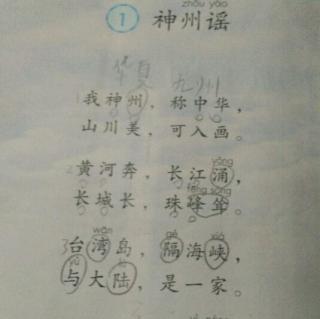 zhōu yáo
1 神州谣
华夏 九州
1 我神州，称中华，
山川美，可入画。
2 黄河奔，长江涌，
yǒng
长城长，珠峰耸。
fēng sǒng
3 台湾岛，隔海峡，
wān gé xiá
与大陆，是一家。
yǔ lù